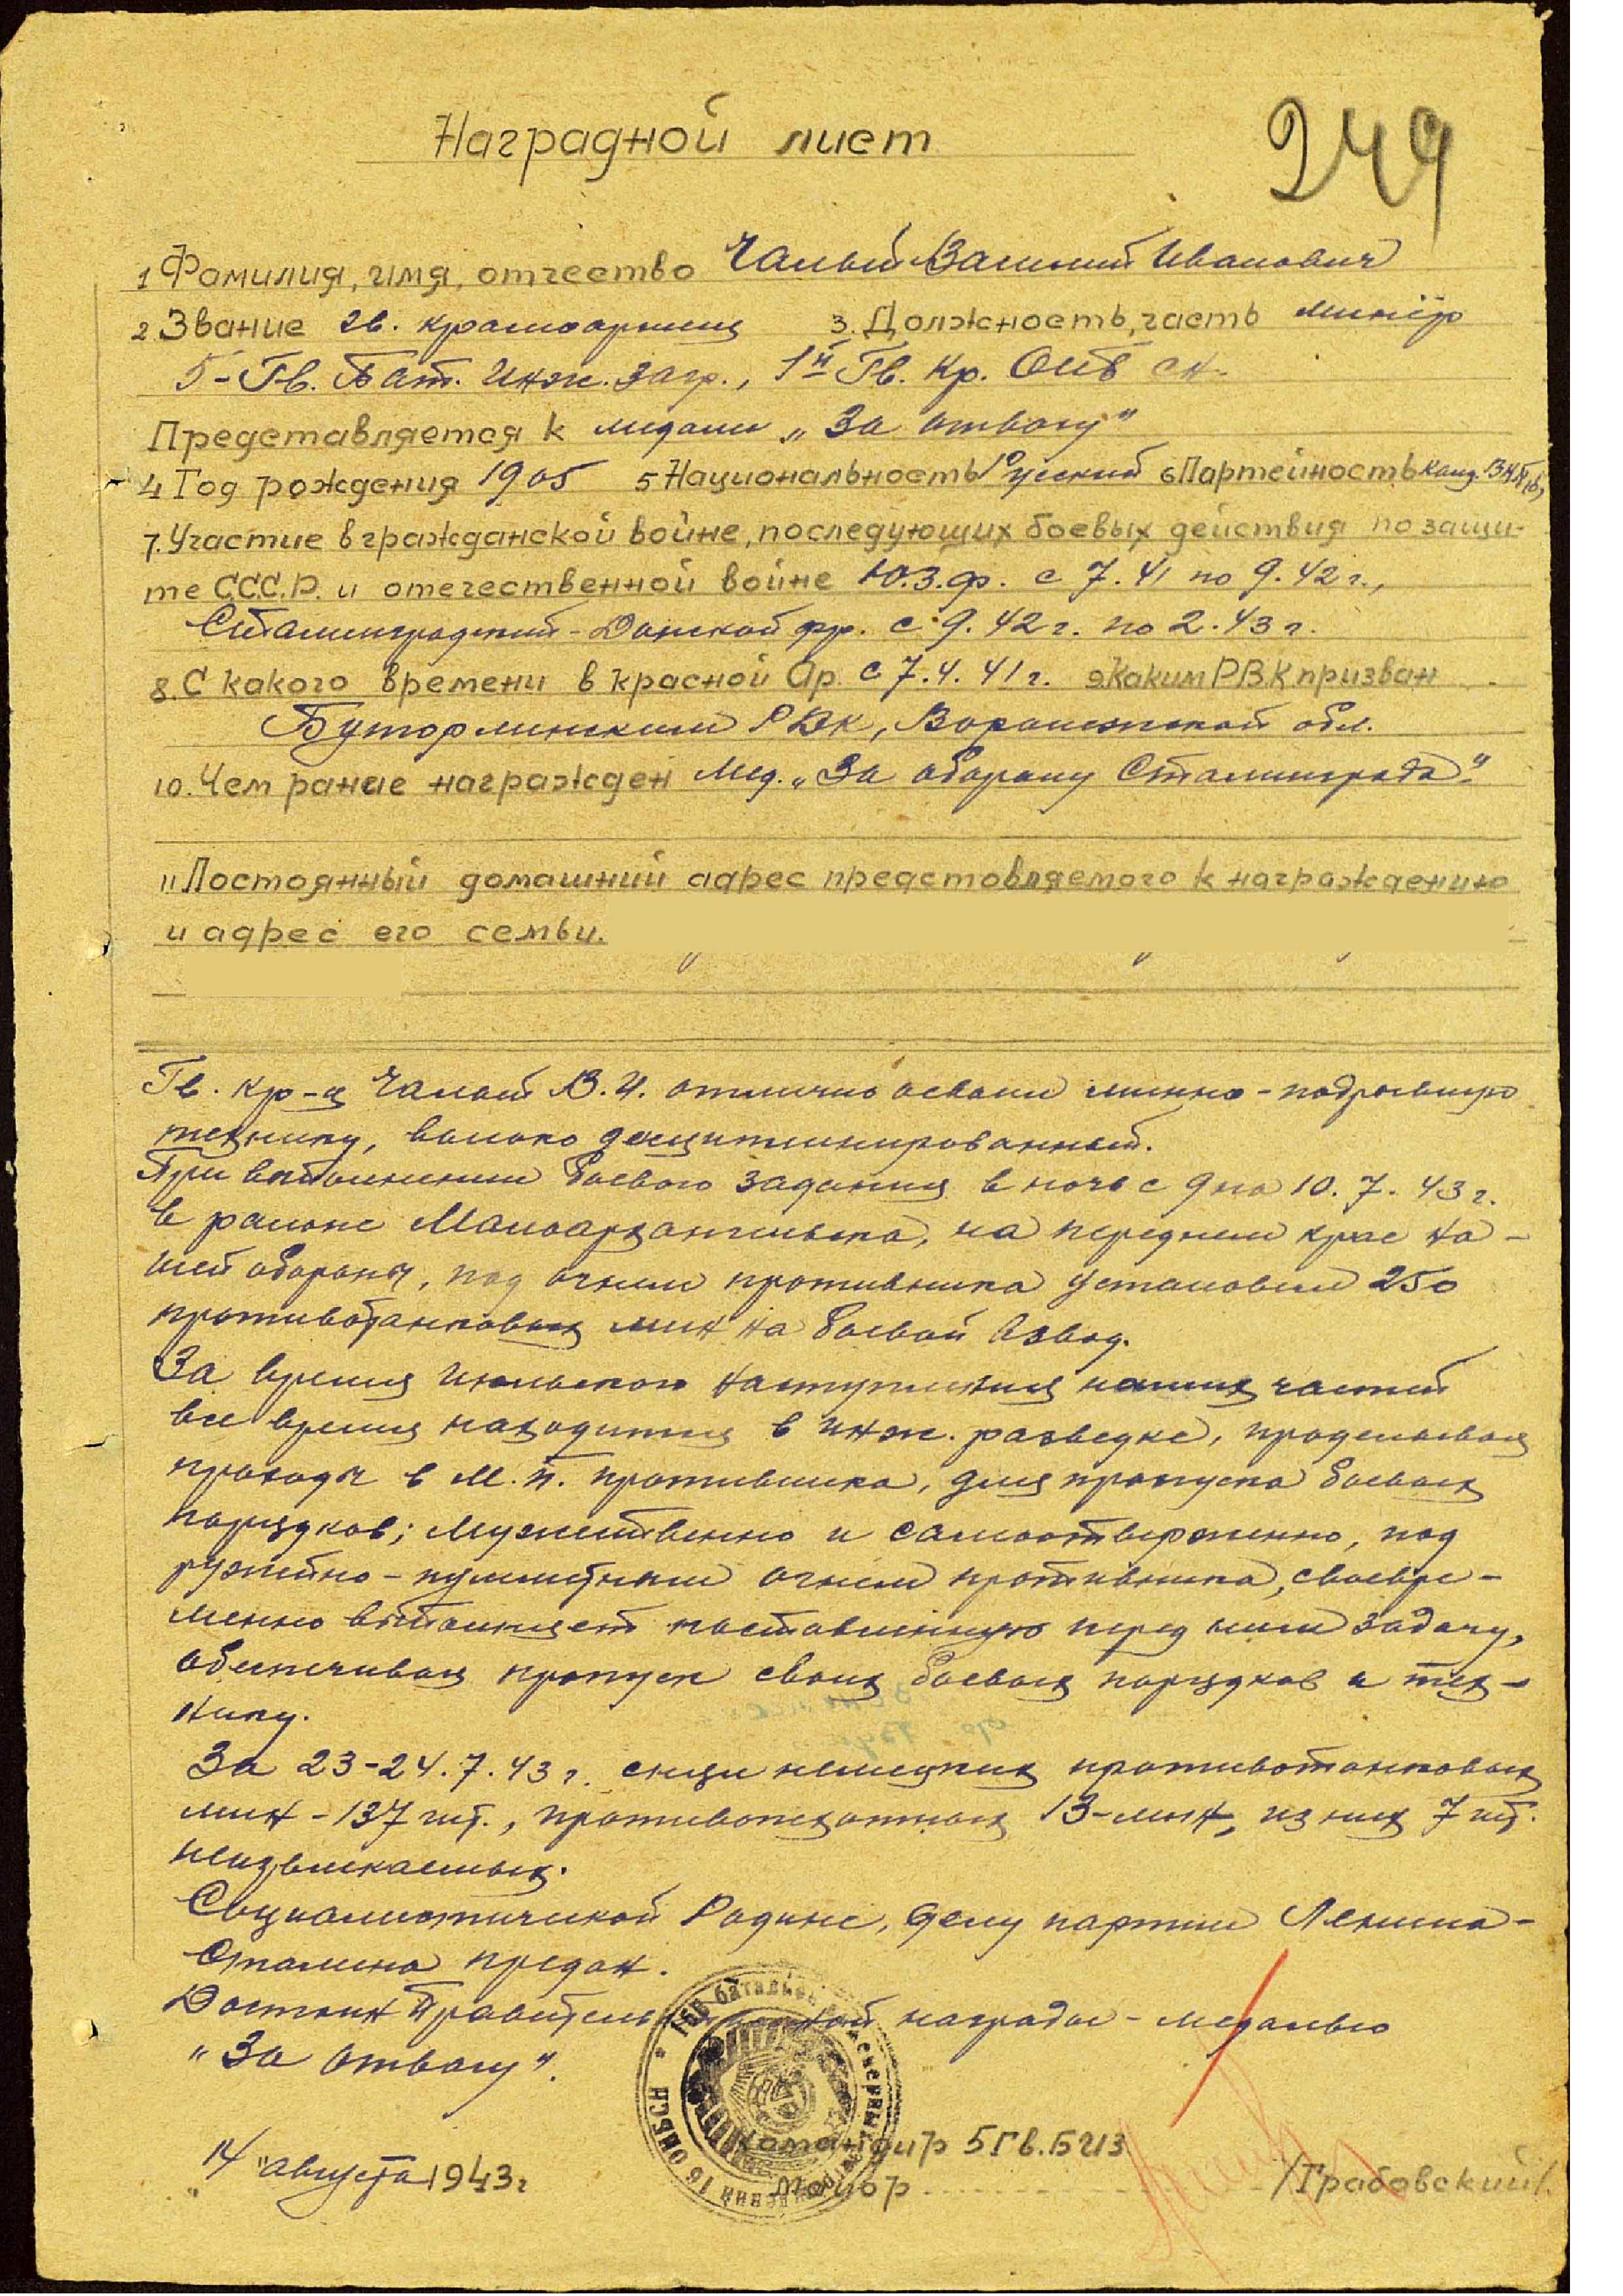 249
Наградной лист
1 Фамилия, имя, отчество Чалый Василий Иванович
2. Звание гв. красноармеец 3. Должность, часть минёр
5-Гв. Бат. Инж. Загр., 1й Гв. Бр. СН.
Представляется к медали „За отвагу"
4 Год рождения 1905 5 Национальность Русский 6 Партейность канд. ВКП(б)
7. Участие в гражданской войне, последующих боевых действия по защи-
те С.С.С.Р. и отечественной войне Ю.З.ф. с 7.41 по 9.42 г.,
Сталинградский-Донской фр. с 9.42 г. по 2.43 г.
8. С какого времени в красной Ар. с 7.4.41 г. 9. Каким РВК призван
Бутурлинским РВК, Воронежской обл.
10. Чем ранае награжден Мед. „За оборону Сталинграда"
11 Постоянный домашний адрес предстовляемого к награждению
и адрес его семьи.
Гв. кр-ц Чалый В.И. отлично освоил минно-подрывную
технику, высоко дисциплинированный.
При выполнении боевого задания в ночь с 9 на 10.7.43 г.
в районе Малоархангельска, на переднем крае на-
шей обороны, под огнем противника установил 250
противотанковых мин на боевой взвод.
За время Июльского наступления наших частей
все время находится в инж. разведке, проделывая
проходы в М.П. противника, для пропуска боевых
порядков; мужественно и самоотверженно, под
ружейно-пулеметным огнем противника, своевре-
менно выполняет поставленную перед ним задачу,
обеспечивая пропуск своих боевых порядков и тех-
нику.
За 23-24.7.43 г. снял немецких противотанковых
мин-137 шт., противопехотных 13-мин, из них 7 шт.
неизвлекаемых.
Социалистической Родине, делу партии Ленина-
Сталина предан.
Достоин Правительственной награды-медалью
„За отвагу".
Командир 5 Гв. БИЗ
„14" августа 1943 г
Майор /Грабовский/.